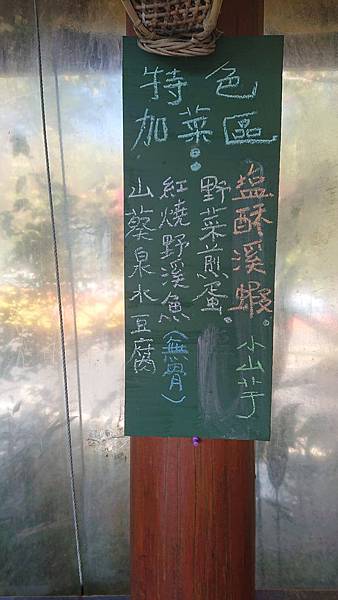 特色
加菜區
塩酥溪蝦。小山芋
野菜煎蛋。
紅燒野溪魚(無骨)
山葵泉水豆腐